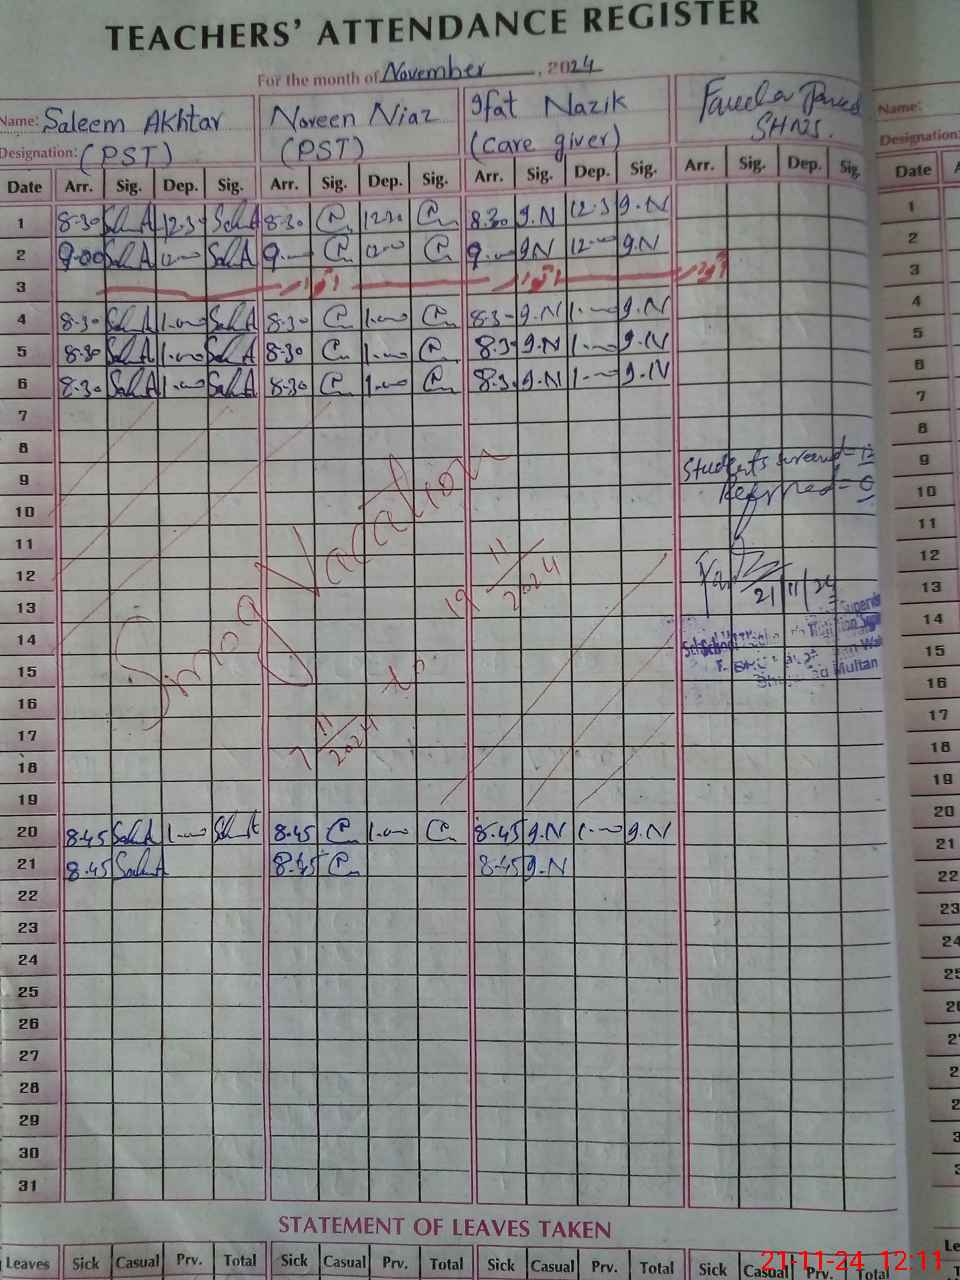 TEACHERS' ATTENDANCE REGISTER
For the month of November, 2024
Name: Saleem Akhtar Noreen Niaz Ifat Nazik
Designation: (PST) (PST) (Care giver) SHNS.
Name:
Designation:
Date Arr. Sig. Dep. Sig. Arr. Sig. Dep. Sig. Arr. Sig. Dep. Sig. Arr. Sig. Dep. Sig. Date
1 8-30 12-3 8-30 12-30 8-30 9.N 12-3 9.N 1
2 9-00 12-00 9-00 12-00 9-00 9.N 12-00 9.N 2
3 3
4 8-30 1-00 8-30 1-00 8-3 9.N 1-00 9.N 4
5 8-30 1-00 8-30 1-00 8-3 9.N 1-00 9.N 5
6 8-30 1-00 8-30 1-00 8-3 9.N 1-00 9.N 6
7 7
8 8
9 Students screened = 12 9
10 Referred = 0 10
11 11
12 12
13 21/11/24 13
14 14
15 15
16 Multan 16
17 17
18 18
19 19
Smog Vacation
7 11/2024 to 19 11/2024
20 8-45 1-00 8-45 1-00 8-45 9.N 1-00 9.N 20
21 8-45 8-45 8-45 9.N 21
22 22
23 23
24 24
25 25
26
27
28
29
30
31
STATEMENT OF LEAVES TAKEN
Leaves Sick Casual Prv. Total Sick Casual Prv. Total Sick Casual Prv. Total Sick Casual Prv. Total
21-11-24 12:11